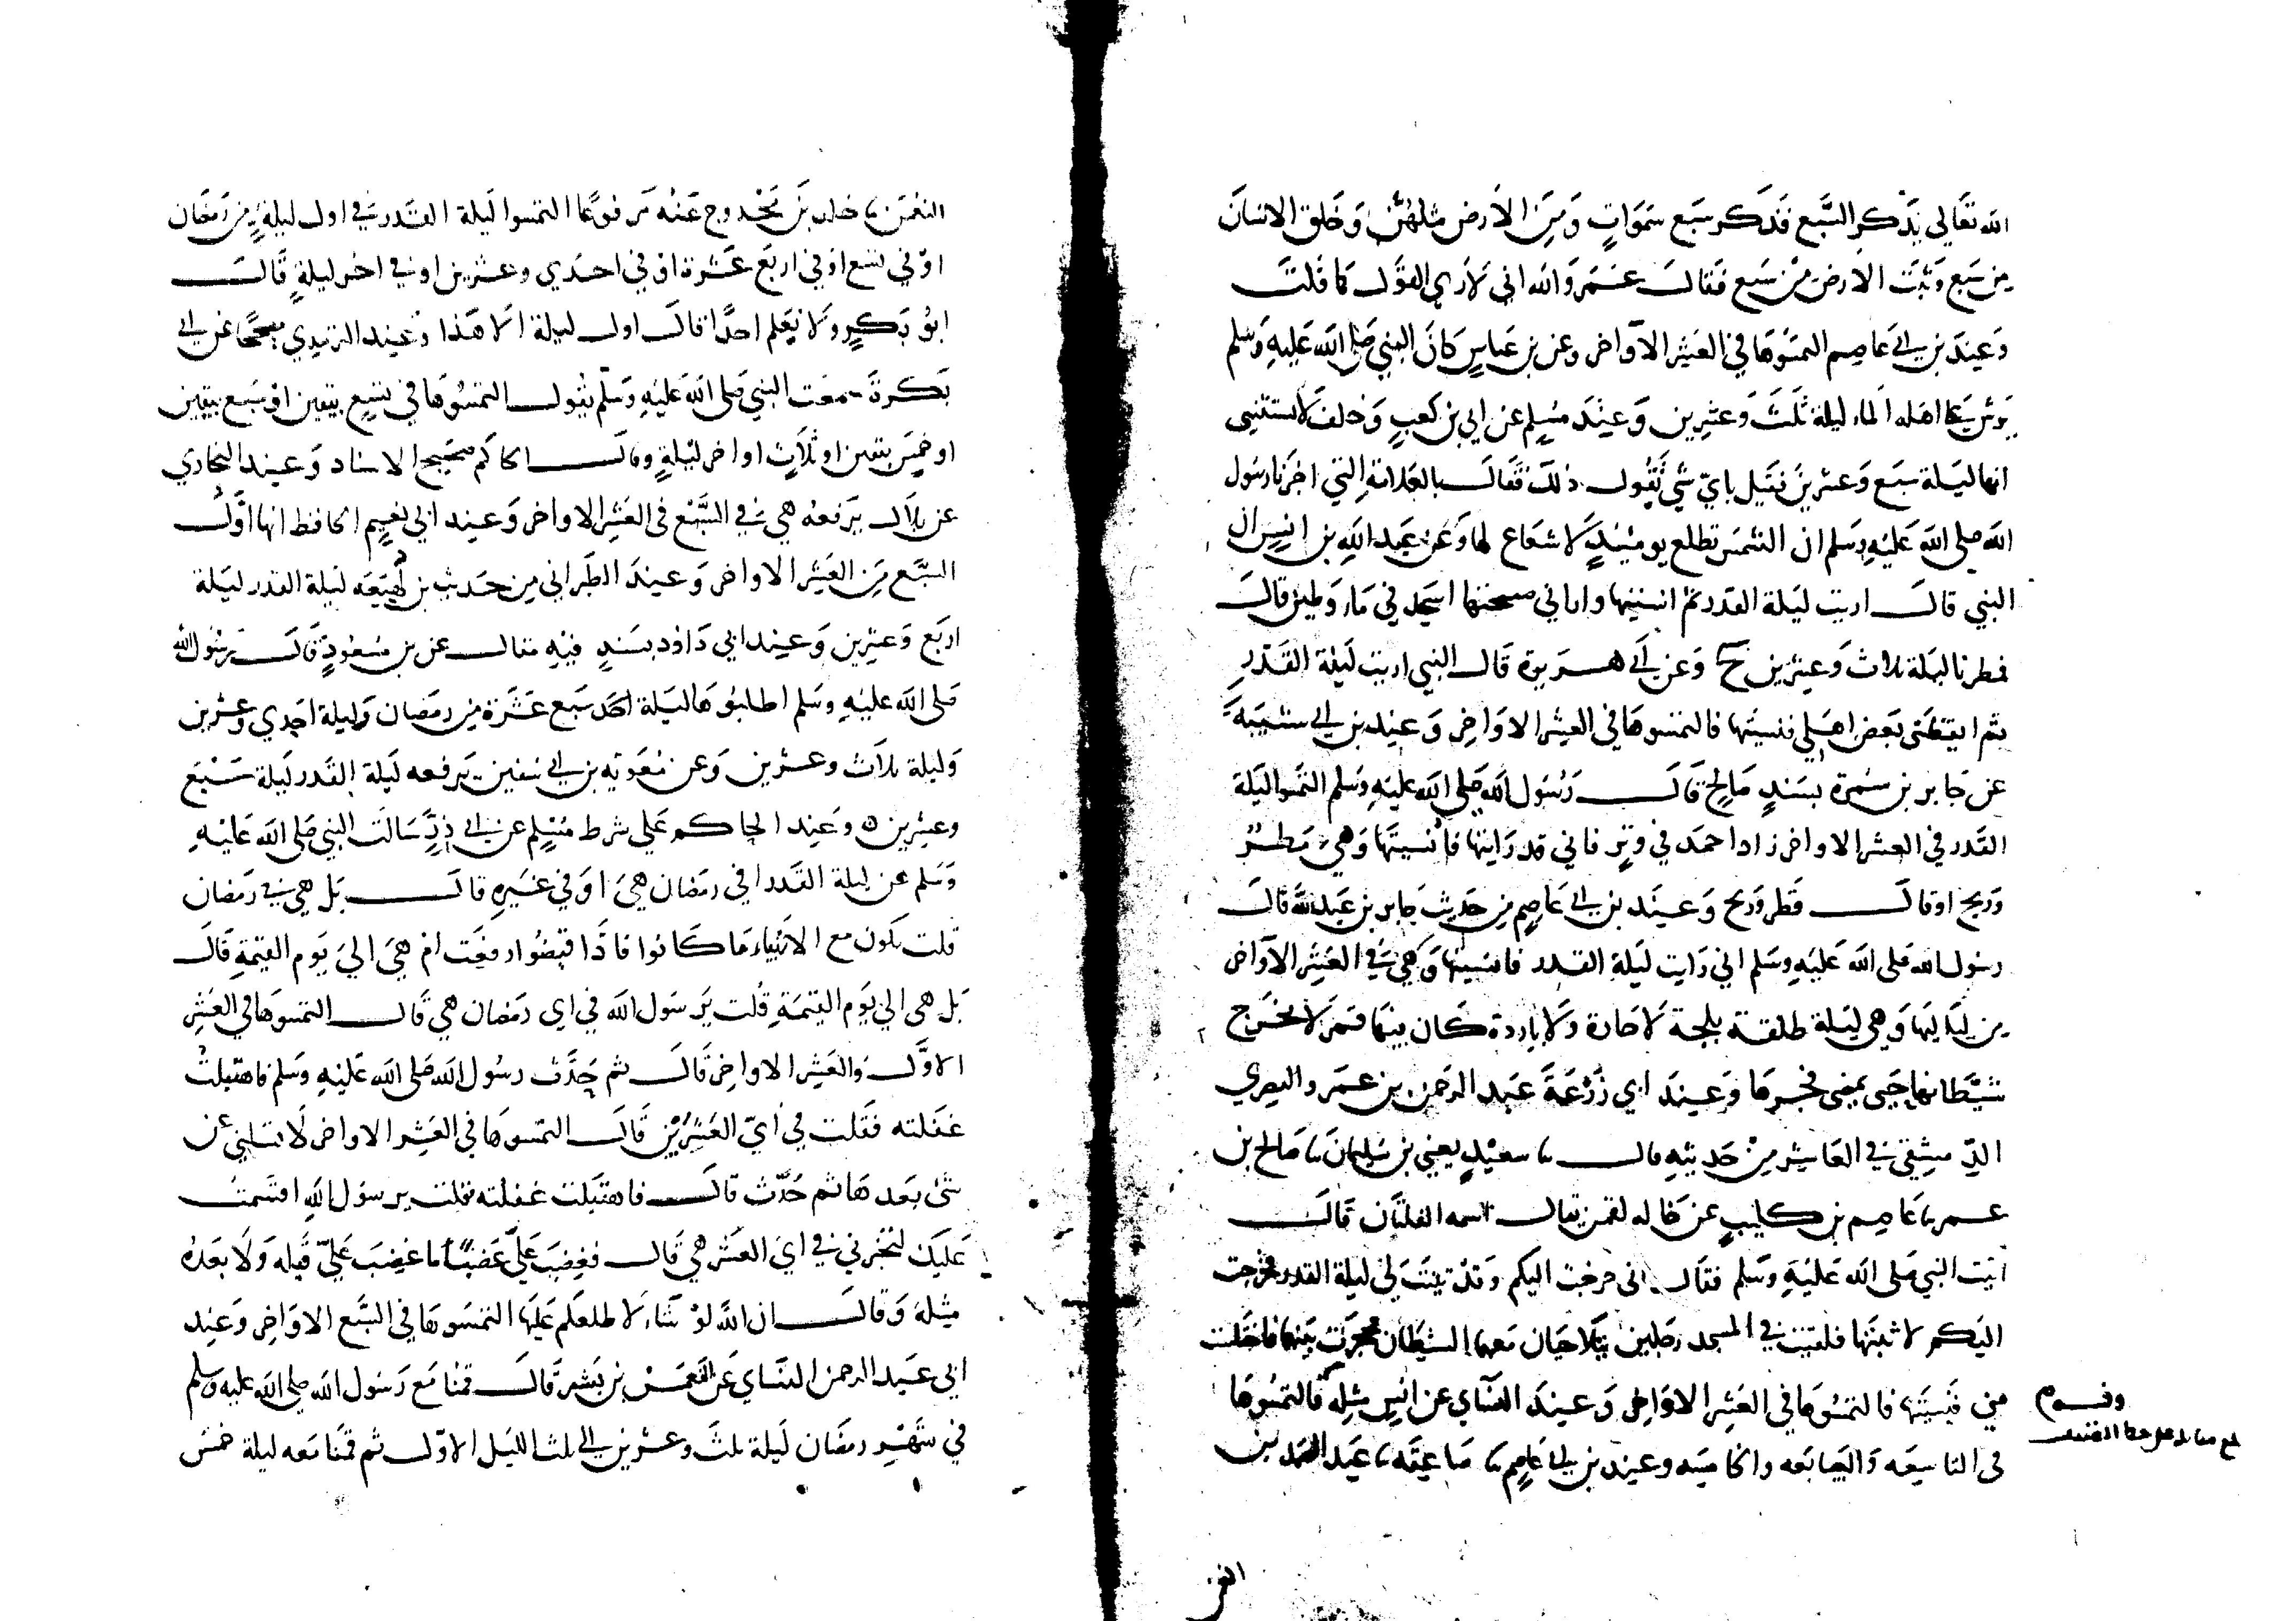 الله تعالى يذكر السبع فذكر سبع سموات ومن الارض مثلهن وخلق الانسان
من سبع ونبت الارض من سبع فقال عمر والله اني لاري القول كما قلت
وعند بن ابي عاصم التمسوها في العشر الاواخر وعن بن عباس كان النبي صلى الله عليه وسلم
يرش على اهله الماء ليلة ثلث وعشرين وعند مسلم عن ابي بن كعب وحلف لا يستثني
انها ليلة سبع وعشرين فقيل باي شي تقول ذلك فقال بالعلامة التي اخبرنا رسول
الله صلى الله عليه وسلم ان الشمس تطلع يومئيذ لا شعاع لها وعن عبد الله بن انيس ان
النبي قال اريت ليلة القدر ثم انسيتها واراني صبحتها اسجد في ماء وطين قال
فمطرنا ليلة ثلاث وعشرين وعن ابي هريرة قال النبي اريت ليلة القدر
ثم ايقظني بعض اهلي فنسيتها فالتمسوها في العشر الاواخر وعند بن ابي شيبة
عن جابر بن سمرة بسند صالح قال رسول الله صلى الله عليه وسلم التمسوا ليلة
القدر في العشر الاواخر زاد احمد في وتر فاني قد رايتها فانسيتها وهي مطر
وريح او قال قطر وريح وعند بن ابي عاصم من حديث جابر بن عبد الله قال
رسول الله صلى الله عليه وسلم اني رايت ليلة القدر فانسيتها وهي في العشر الاواخر
من لياليها وهي ليلة طلقة بلجة لا حارة ولا باردة كان فيها قمر لا يخرج
شيطانها حتى يضي فجرها وعند ابي زرعة عبد الرحمن بن عمرو البصري
الدمشقي في العاشر من حديثه قال نا سعيد يعني بن سليمان نا صالح بن
عمر نا عاصم بن كليب عن خاله لقمن يقال اسمه الفلتان قال
اتيت النبي صلى الله عليه وسلم فقال اني خرجت اليكم وقد بينت لي ليلة القدر فخرجت
اليكم لاثبتها فلقيت في المسجد رجلين يتلاحيان معهما الشيطان فحجزت بينهما فاختلست
مني فنسيتها فالتمسوها في العشر الاواخر وعند النساي عن انس مثله فالتمسوها
في التاسعه والسابعه والخامسه وعند بن ابي عاصم نا عبد الصمد بن
النعمن نا خالد بن محدوج عنه مرفوعا التمسوا ليلة القدر في اول ليلة من رمضان
او في تسع او في اربع عشرة او في احدي وعشرين او في اخر ليلة قال
ابو بكر ولا نعلم احدا قال اول ليلة الا هذا وعند الترمدي مصححا عن ابي
بكرة سمعت النبي صلى الله عليه وسلم يقول التمسوها في تسع يبقين او سبع يبقين
او خمس يبقين او ثلاث او اخر ليلة وقال الحاكم صحيح الاسناد وعند البخاري
عن بلال يرفعه هي في السبع في العشر الاواخر وعند ابي نعيم الحافظ انها اول
السبع من العشر الاواخر وعند الطبراني من حديث بن لهيعه ليلة القدر ليلة
اربع وعشرين وعند ابي داود بسند فيه مقال عن بن مسعود قال رسول الله
صلى الله عليه وسلم اطلبوها ليلة سبع عشرة من رمضان وليلة احدي وعشرين
وليلة ثلاث وعشرين وعن معوية بن ابي سفين يرفعه ليلة القدر ليلة سبع
وعشرين ه وعند الحاكم علي شرط مسلم عن ابي ذر سالت النبي صلى الله عليه
وسلم عن ليلة القدر افي رمضان هي او في غيره قال بل هي في رمضان
قلت تكون مع الانبياء ما كانوا فاذا قبضوا رفعت ام هي الي يوم القيمة قال
بل هي الي يوم القيمة قلت يرسول الله في اي رمضان هي قال التمسوها في العشر
الاول والعشر الاواخر قال ثم حدث رسول الله صلى الله عليه وسلم فاهتبلت
غفلته فقلت في اي العشرين قال التمسوها في العشر الاواخر لا تسلني عن
شئ بعدها ثم حدث قال فاهتبلت غفلته فقلت يرسول الله اقسمت
عليك لتخبرني في اي العشر هي قال فغضب علي غضبا ما غضب علي قبله ولا بعده
مثله وقال ان الله لو شاء لا طلعكم عليها التمسوها في السبع الاواخر وعند
ابي عبد الرحمن النساي عن النعمن بن بشير قال قمنا مع رسول الله صلى الله عليه وسلم
في شهر رمضان ليلة ثلث وعشرين الي ثلث الليل الاول ثم قمنا معه ليلة خمس